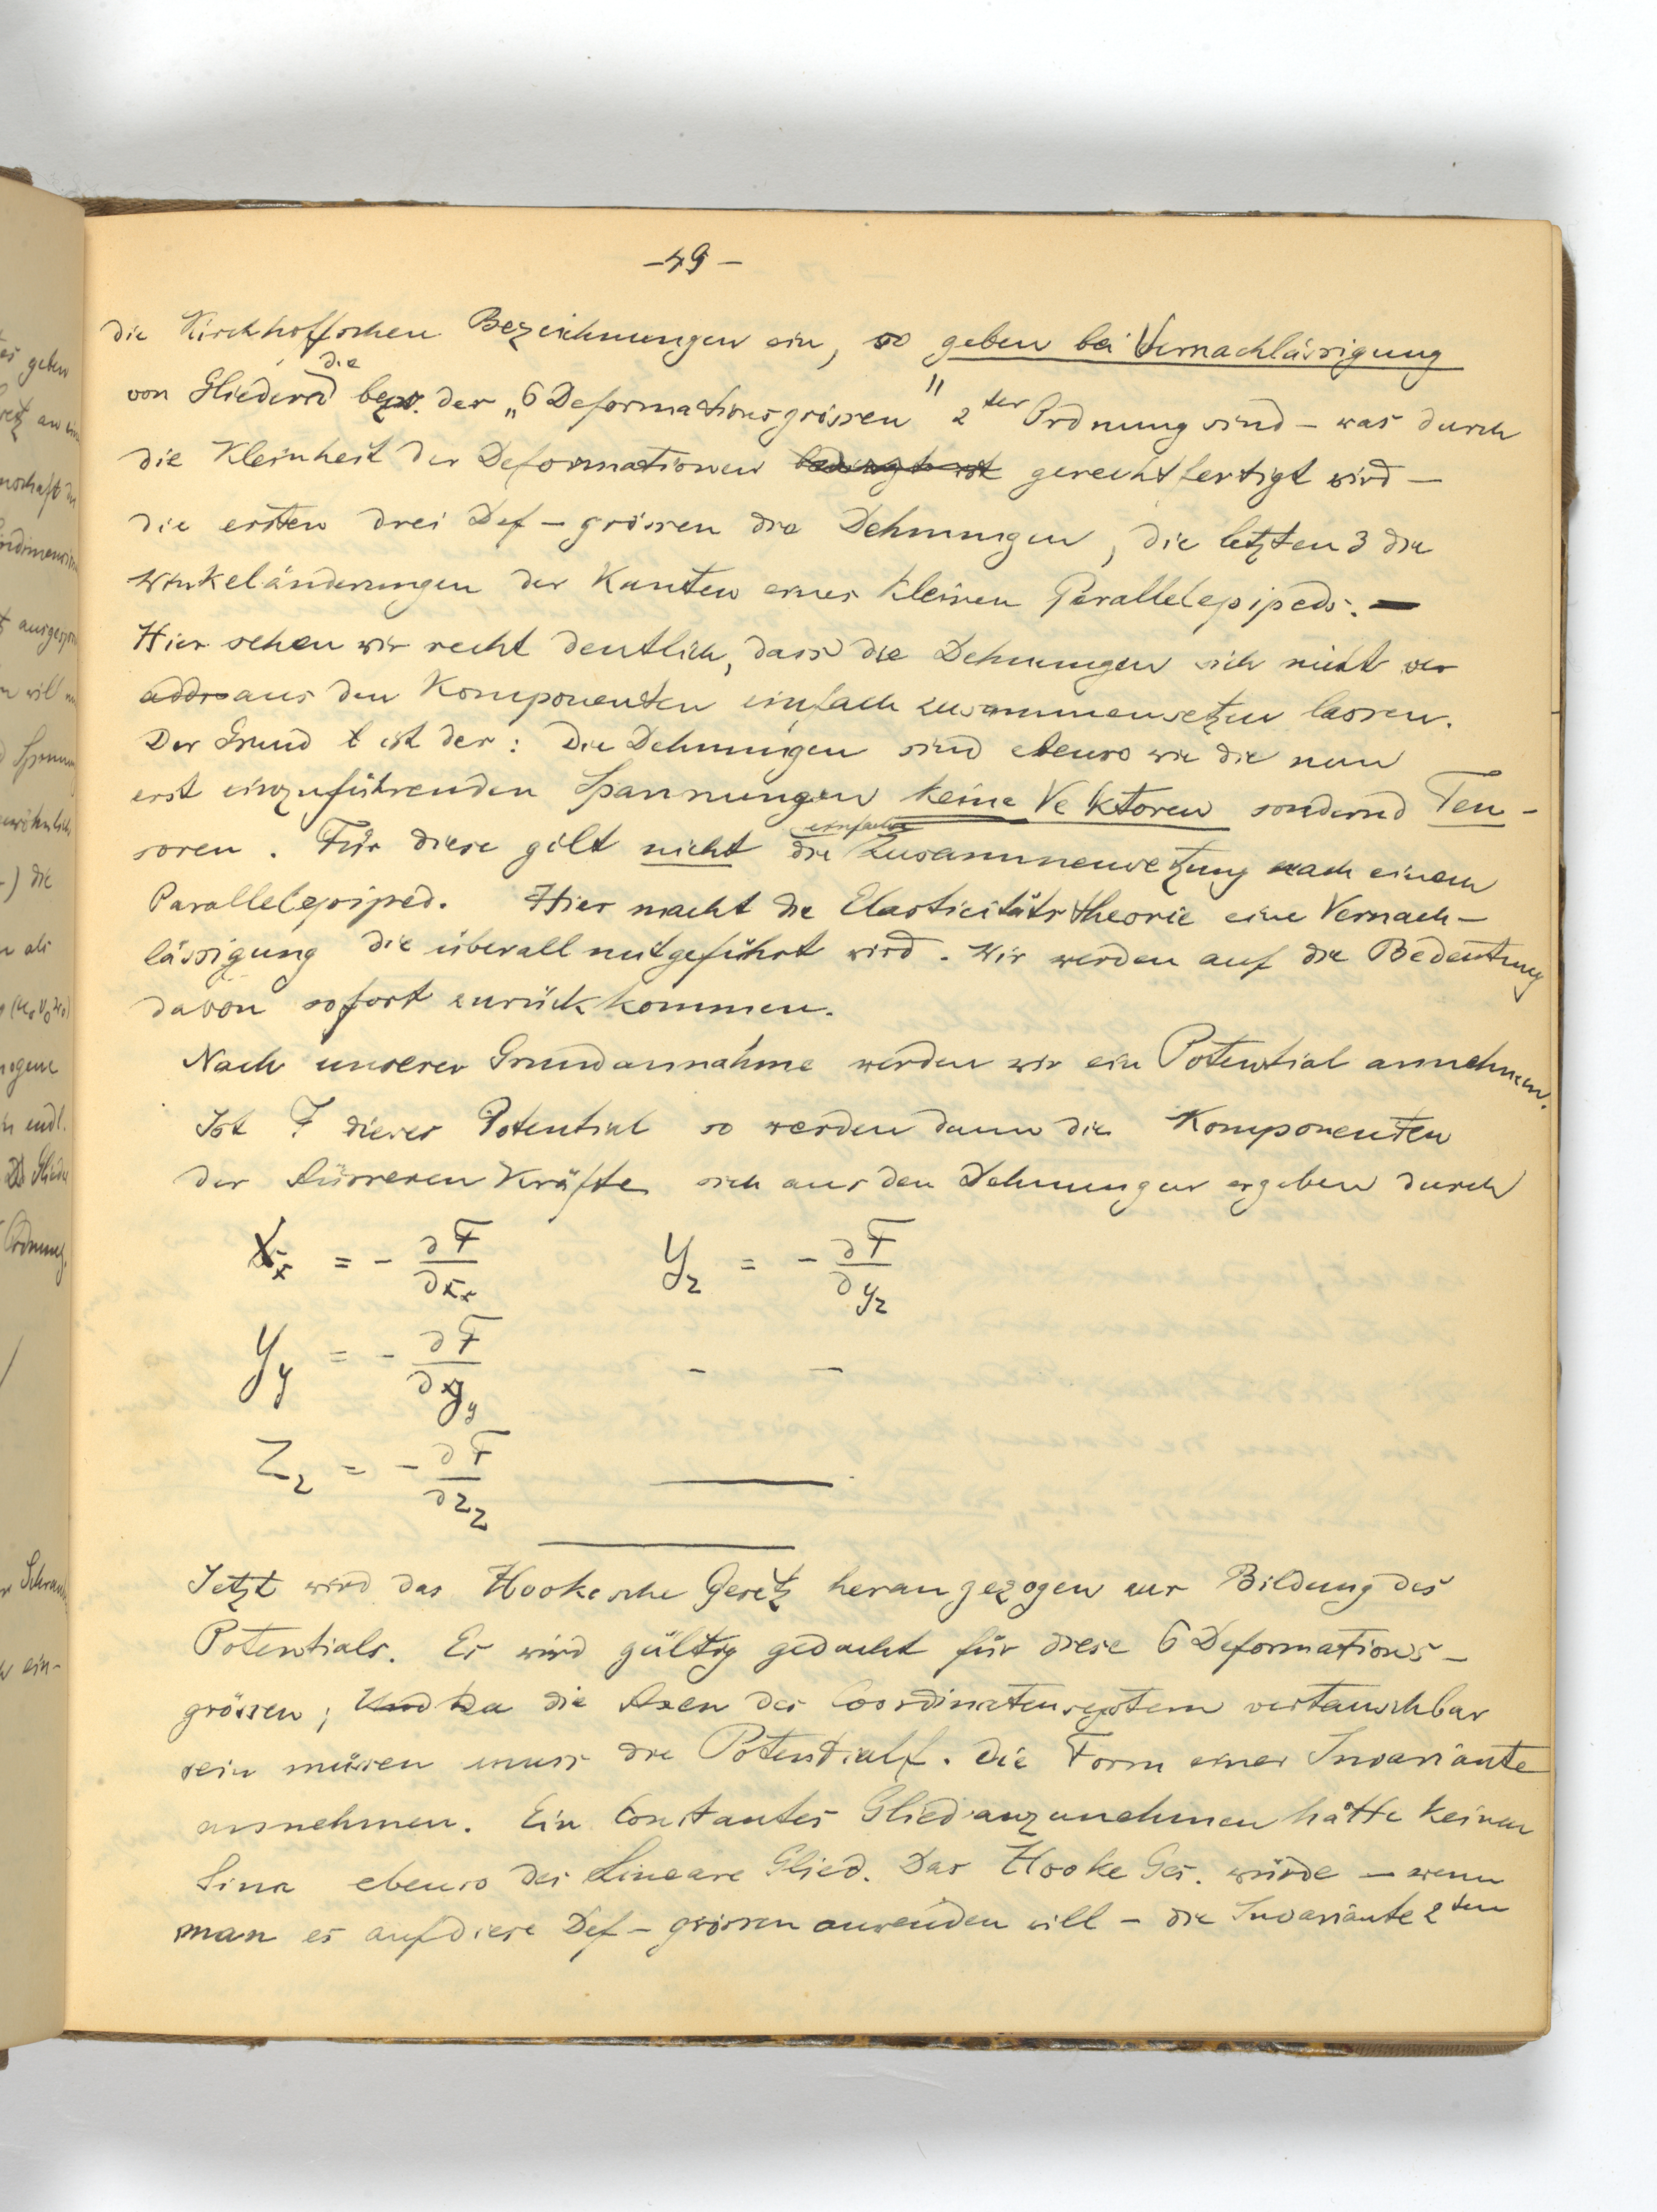 – 49 –
die Kirchhoffschen Bezeichnungen ein, so geben bei Vernachlässigung
von Gliedern die bezw. der „6 Deformationsgrössen" 2ter Ordnung sind – was durch
die Kleinheit der Deformationen bedingt ist gerechtfertigt wird –
die ersten drei Def – grössen die Dehnungen, die letzten 3 die
Winkeländerungen der Kanten eines kleinen Parallelepipeds. –
Hier sehen wir recht deutlich, dass die Dehnungen sich nicht
aus den Komponenten einfach zusammensetzen lassen.
Der Grund ist der: Die Dehnungen sind ebenso wie die nun
erst einzuführenden Spannungen keine Vektoren sondern Ten-
soren. Für diese gilt nicht die einfache Zusammensetzung nach einem
Parallelepiped. Hier macht die Elasticitätstheorie eine Vernach-
lässigung die überall mitgeführt wird. Wir werden auf die Bedeutung
davon sofort zurückkommen.
Nach unserer Grundannahme werden wir ein Potential annehmen.
Ist F dieses Potential so werden dann die Komponenten
der Äusseren Kräfte sich aus den Dehnungen ergeben durch
X_x = - ∂F/∂x_x Y_z = - ∂F/∂y_z
Y_y = - ∂F/∂y_y – –
Z_z = - ∂F/∂z_z
Jetzt wird das Hookesche Gesetz herangezogen zur Bildung des
Potentials. Es wird gültig gedacht für diese 6 Deformations-
grössen; Und da die Axen des Coordinatensystem vertauschbar
sein müssen muss die Potentialf. die Form einer Invariante
annehmen. Ein Constantes Glied anzunehmen hätte keinen
Sinn ebenso das Lineare Glied. Das Hooke Ges. würde – wenn
man es auf diese Def – grössen anwenden will – die Invariante 2ten